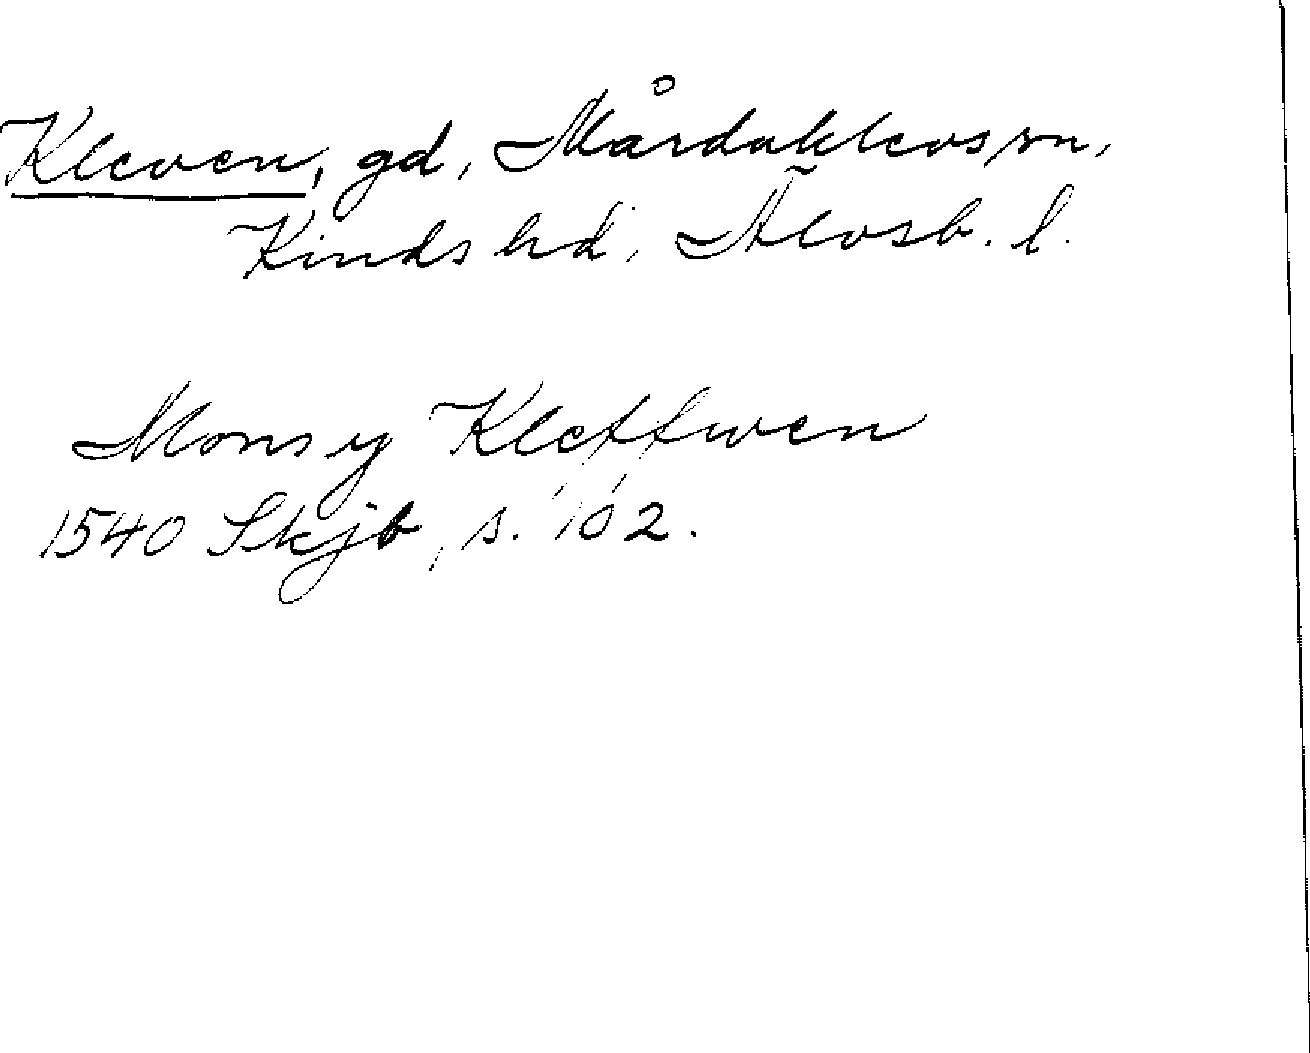 Kleven, gd, Mårdaklevs sn,
Kinds hd, Älvsb. l.
Mons y Kleffwen
1540 Skjb, s. 102.